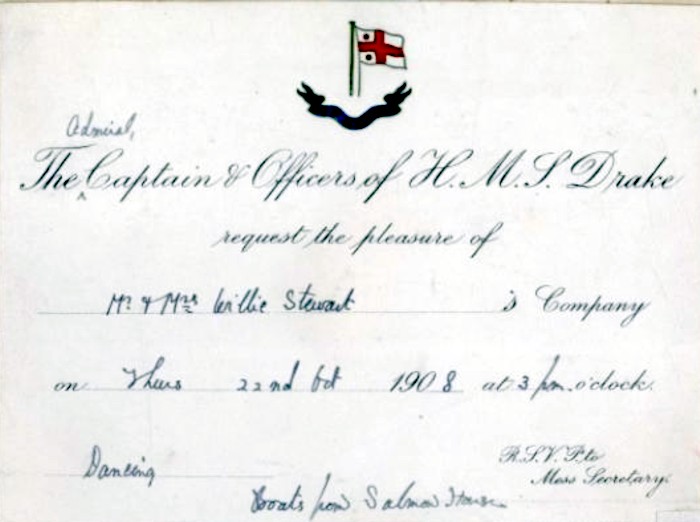 Admiral,
The Captain & Officers of H.M.S. Drake
request the pleasure of
Mr & Mrs Willie Stewart 's Company
on Thurs 22nd Oct 1908 at 3 pm. o'clock.
Dancing
R.S.V.P. to
Mess Secretary.
Boats from Salmon House